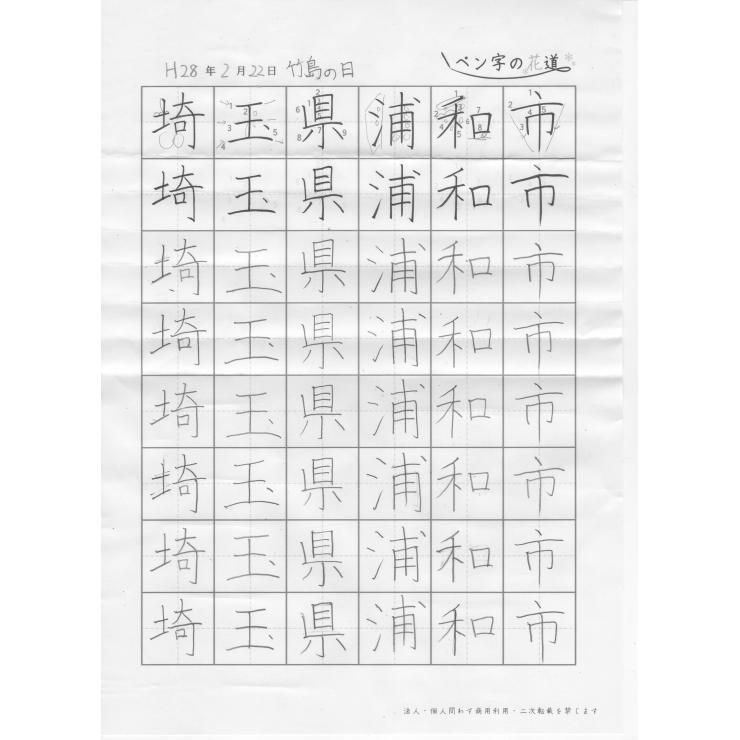 H28年2月22日 竹島の日
ペン字の花道
埼玉県浦和市
埼玉県浦和市
埼玉県浦和市
埼玉県浦和市
埼玉県浦和市
埼玉県浦和市
埼玉県浦和市
埼玉県浦和市
法人・個人問わず商用利用・二次転載を禁じます